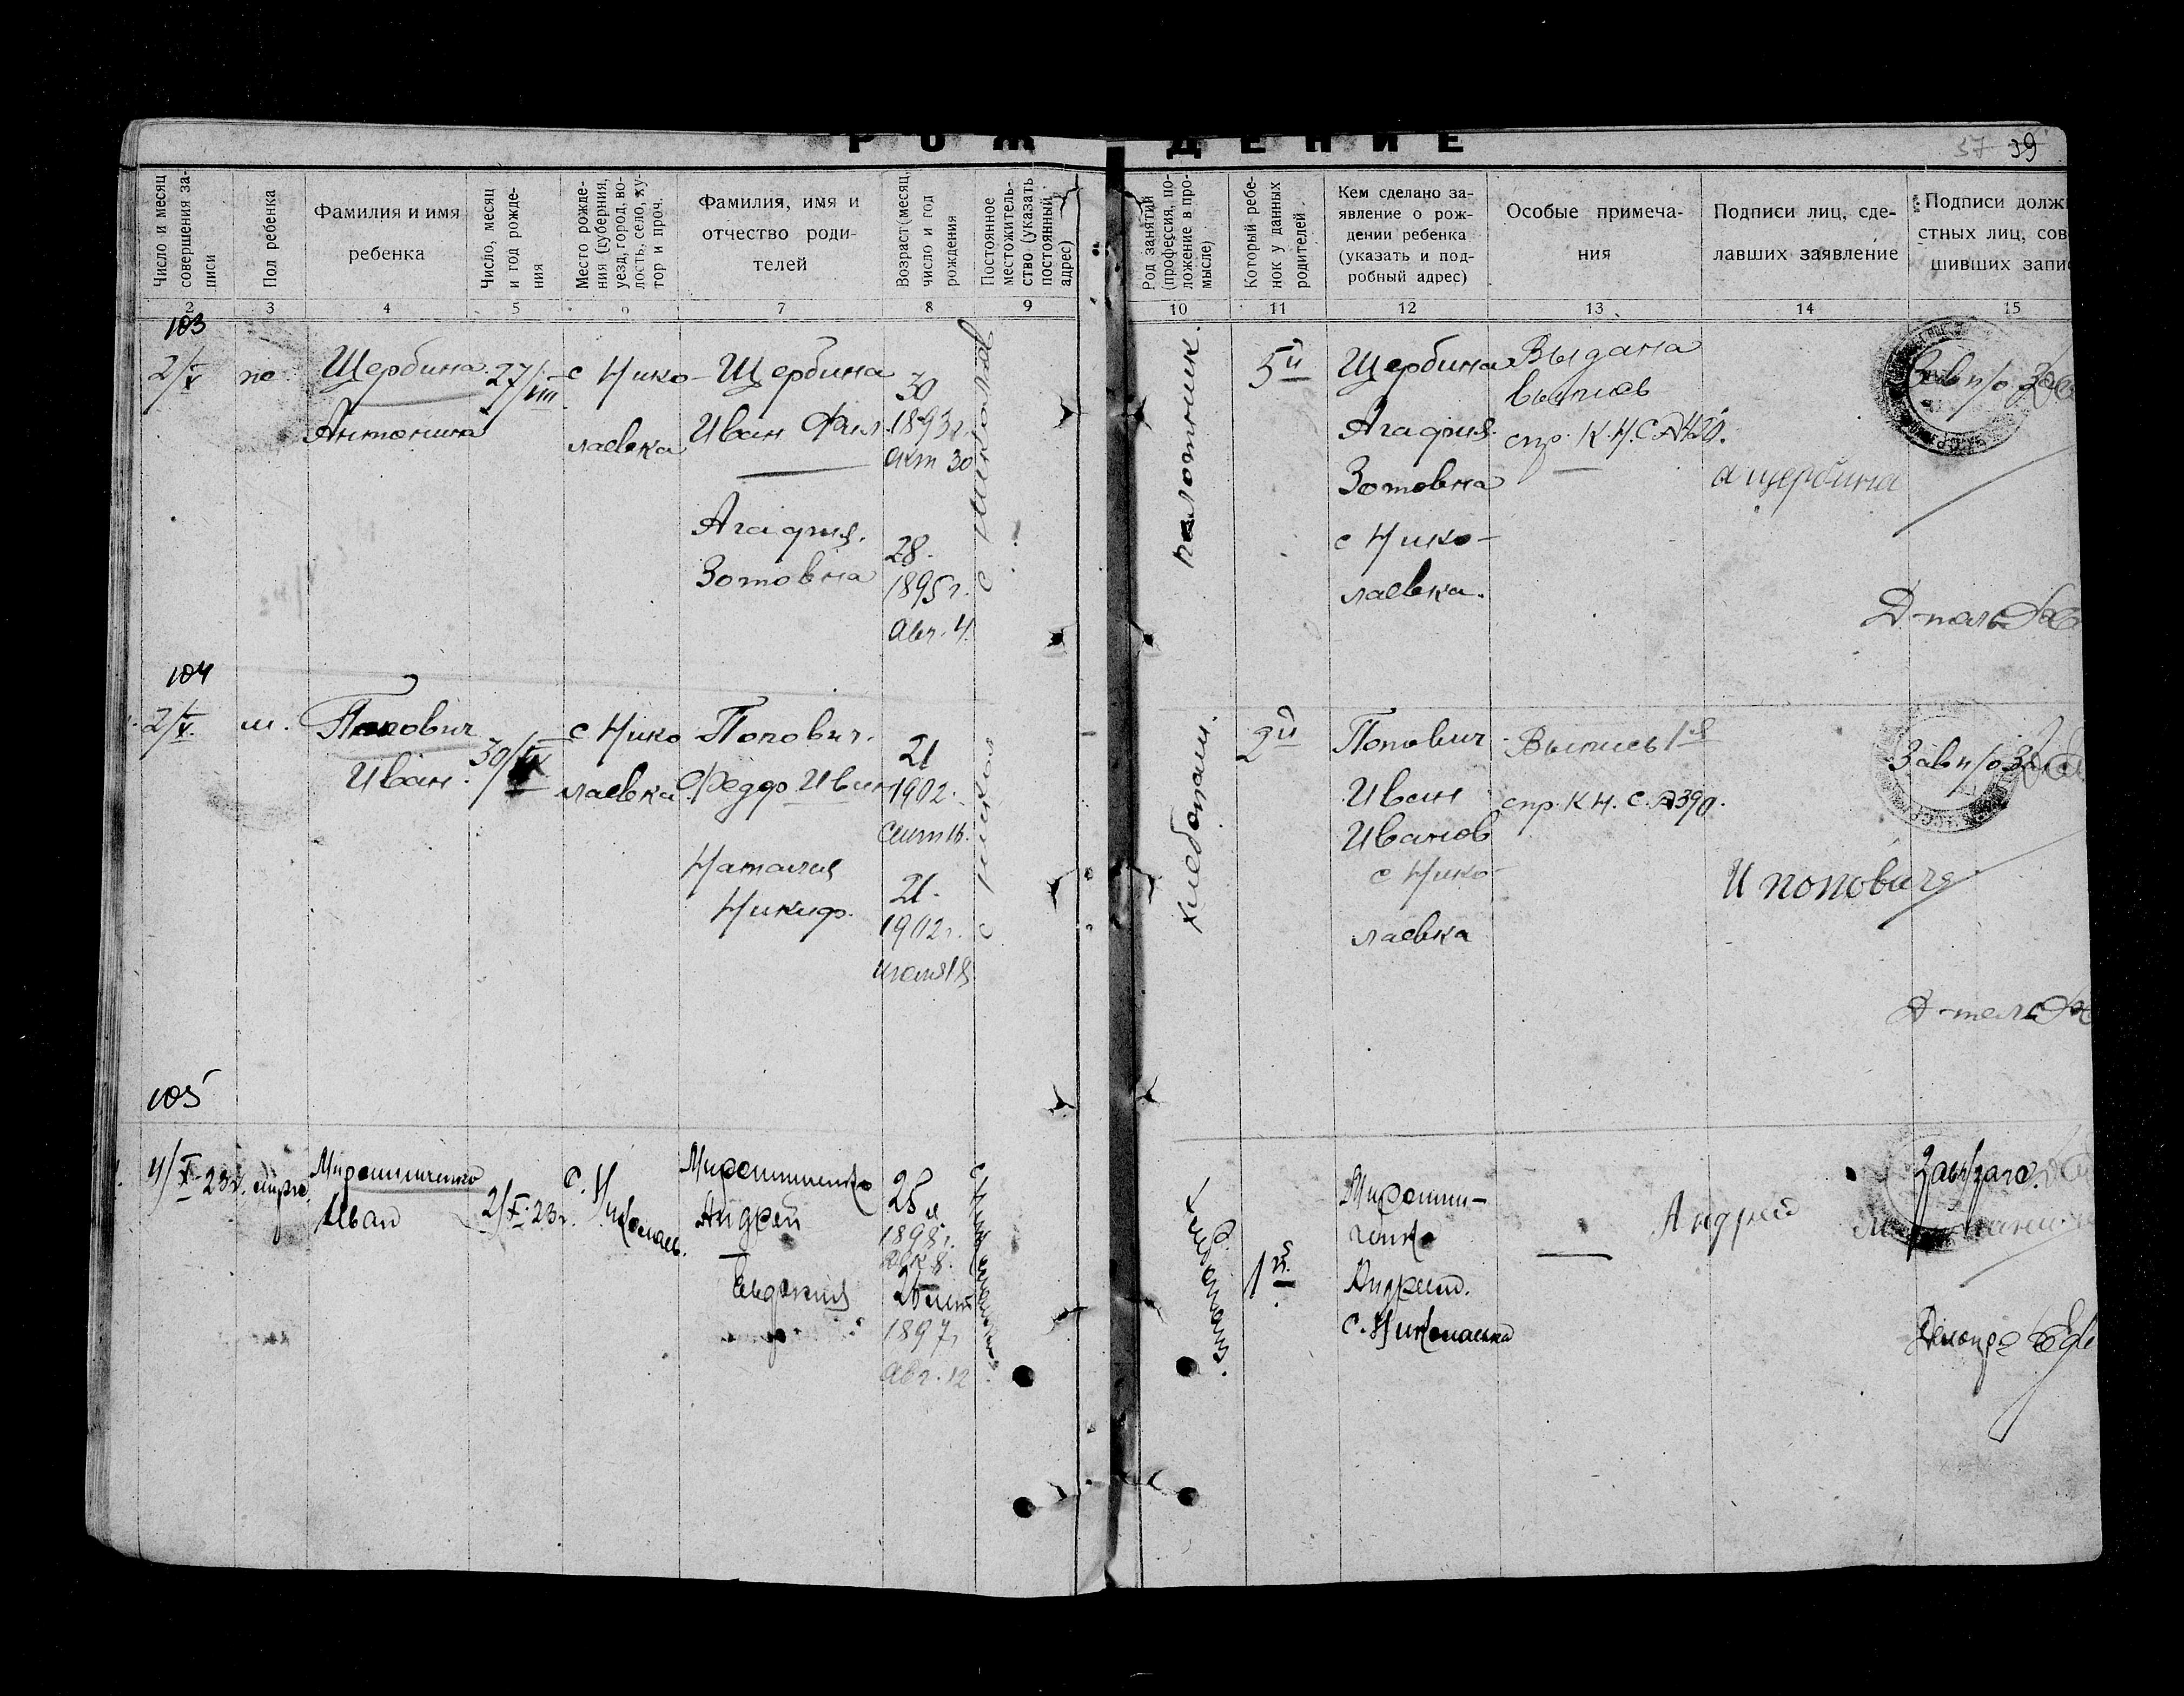 РОЖДЕНИЕ
39
Число и месяц совершения записи
Пол ребенка
Фамилия и имя ребенка
Число, месяц и год рождения
Место рождения (губерния, уезд, город, волость, село, хутор и проч.
Фамилия, имя и отчество родителей
Возраст (месяц, число и год рождения
Постоянное местожительство (указать постоянный адрес)
Род занятий (профессия, положение в промысле)
Который ребенок у данных родителей
Кем сделано заявление о рождении ребенка (указать и подробный адрес)
Особые примечания
Подписи лиц, сделавших заявление
Подписи долж
стных лиц, сов
шивших запи
2 3 4 5 6 7 8 9 10 11 12 13 14 15
103
2/X
Щербина
Антонина
27/VIII
с Нико-
лаевка
Щербина
Иван Фил.
30
1893 г.
окт 30
Агафия
Зотовна
28.
1895 г.
Авг. 4.
с Николаев
плотник.
5й
Щербина
Агафия
Зотовна
с Нико-
лаевка.
Выдана
выпись
спр. К.Н.С. №420.
а щербина
Зав п/о Загс
104
2/X.
м.
Попович
Иван.
30/IX
с Нико
лаевка
Попович.
Федор Иван
21
1902.
Сент 16.
Наталия
Никиф.
21.
1902 г.
июля 18
с никол
хлебопаш.
2й
Попович
Иван
Иванов
с Нико-
лаевка
Выпись 1я
спр. К Н. С. №390.
И попович
Зав п/о Загс
105
4/X 23г.
Мирошниченко
Иван
2/X 23г.
с. Николаев.
Мирошниченко
Андрей
25 л
1898 г.
Евдокия
26 лет
1897 г
Авг. 12
с. Николаевка
1й
Мирошни-
ченко
Андрей.
с. Николаевка
—
Андрей
Завзагс.